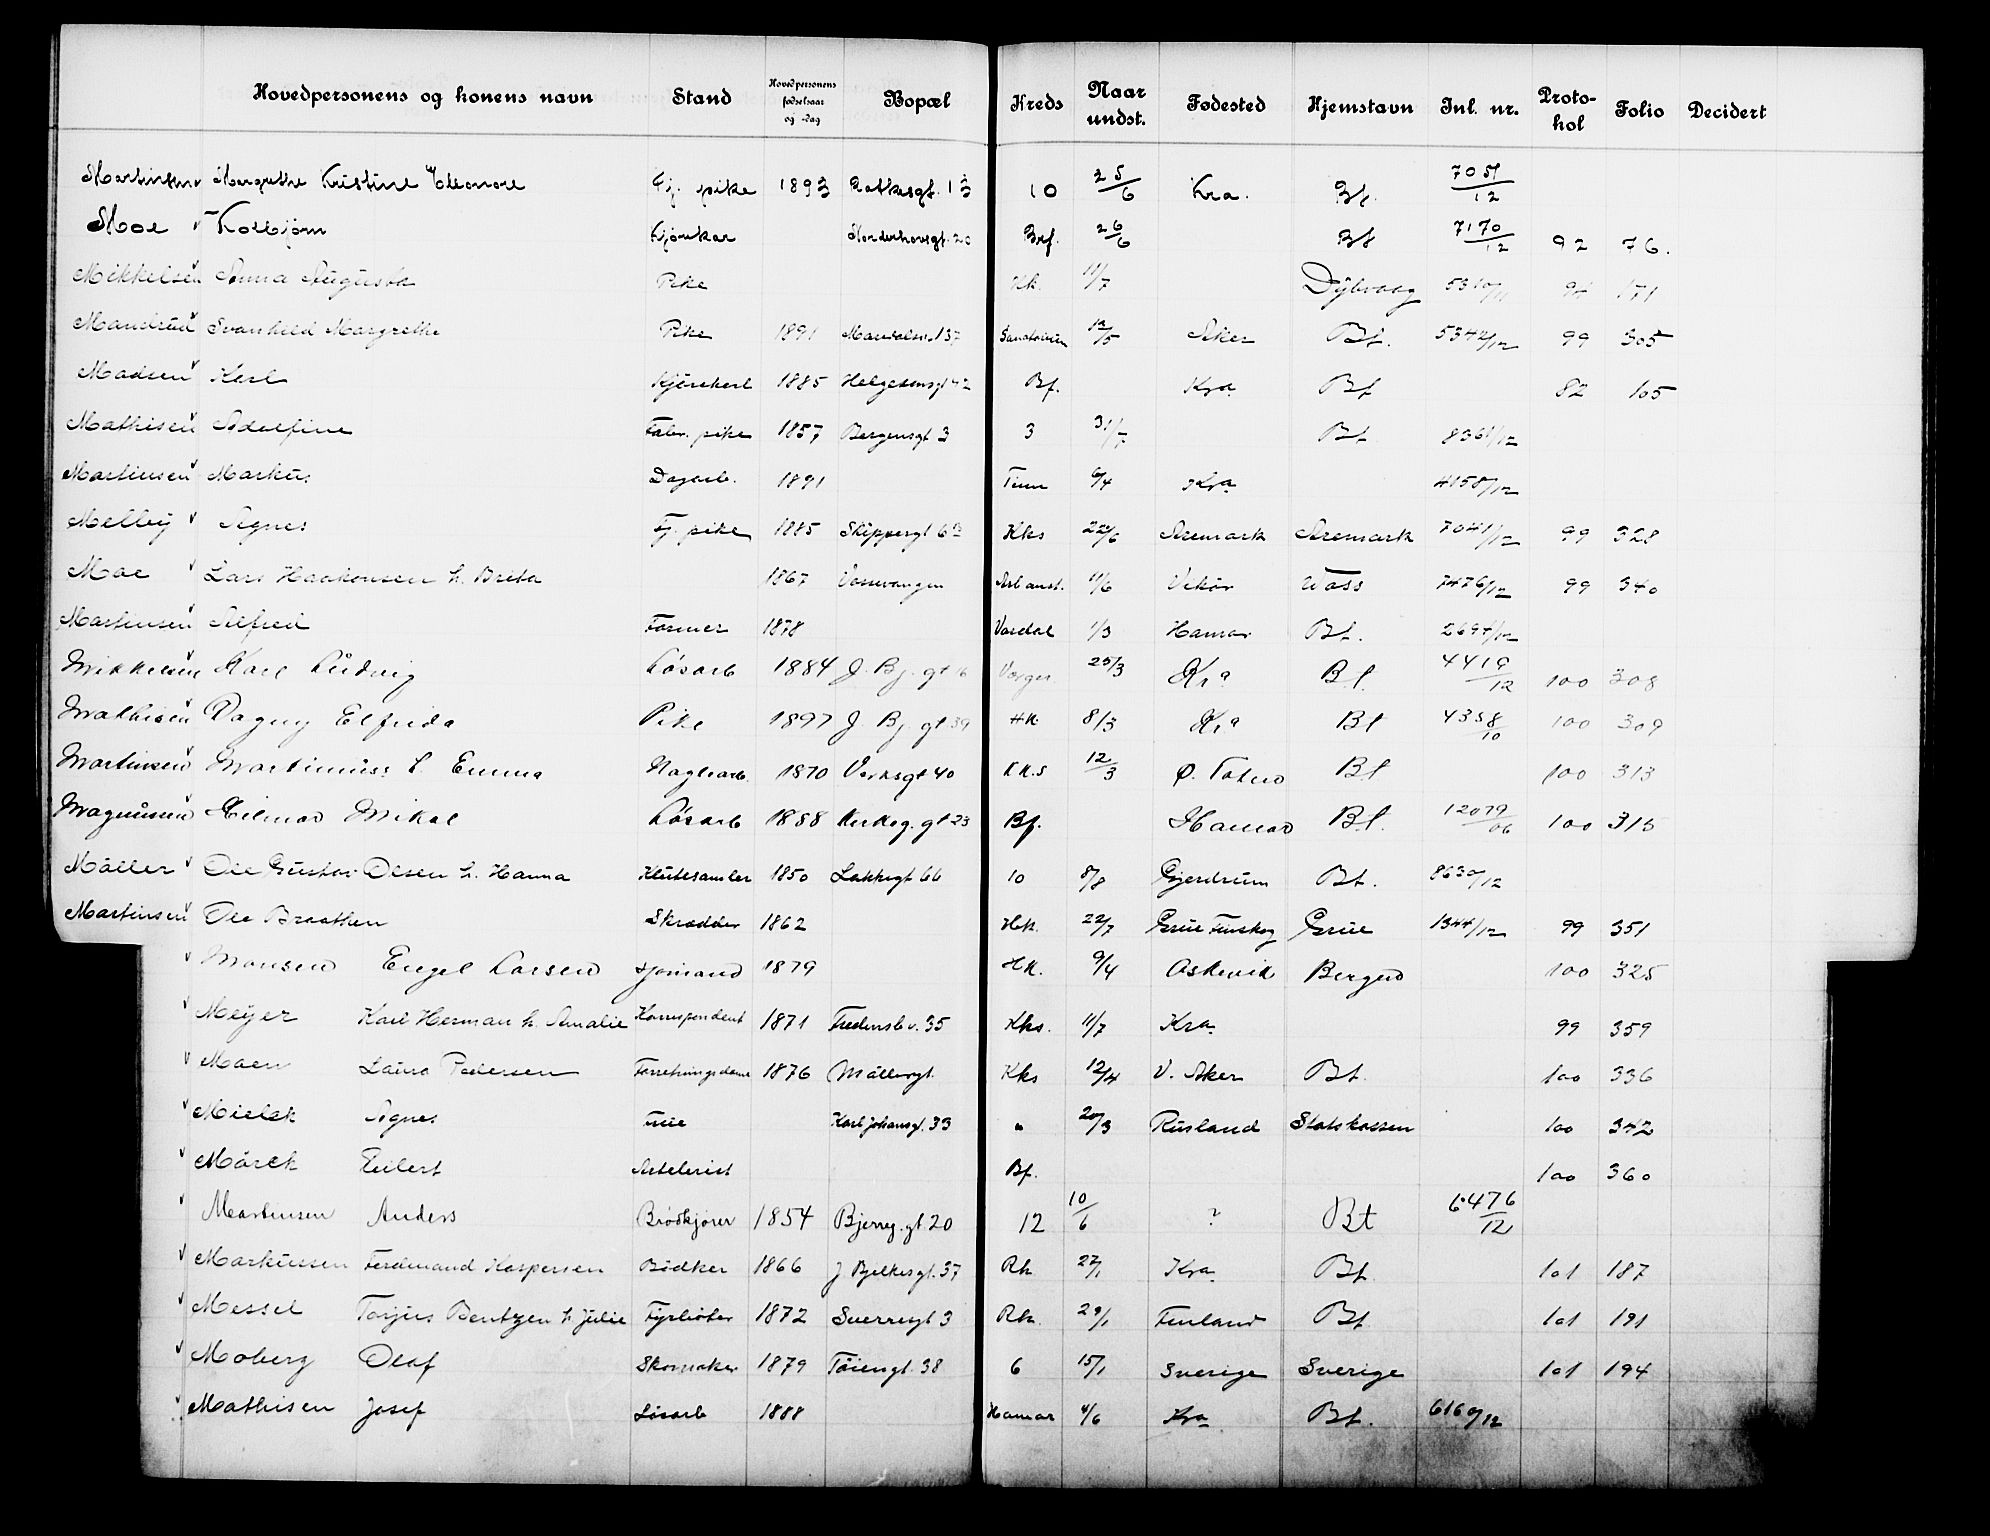 Hovedpersonens og konens navn Stand Hovedpersonens fødselsaar og -dag Bopæl Kreds Naar undst. Fødested Hjemstavn Inl. nr. Proto-kol Folio Decidert
Martinsen Margrethe Kristine Eleonore Tj. pike 1893 10 25/6 Kra. Bt. 7051/12
Moe Kolbjørn Kjørekar Norderhovsgt. 20 Bef. 26/6 Bt 7170/12 92 76.
Mikkelsen Anna Augusta Pike Kk. 11/7 Dybvaag 5310/11 94 171
Mandrud Svanhild Margrethe Pike 1891 Maridalsv. 137 Sanatorium 12/5 Aker Bt. 5342/12 99 305
Madsen Karl Kjørekarl 1885 Helgesensgt 42 Bf. Kra Bt 82 105
Mathisen Adolfine Fabr. pike 1857 Bergensgt 3 3 31/7 Bt. 8361/12
Martinsen Markus Dagarb. 1891 6/4 Kra 4158/12
Melby Agnes Tj. pike 1885 Skippergt 6 Kks 22/6 Aremark Aremark 7041/12 99 328
Moe Lars Haakonsen h. Brita 1867 Vossevangen Arb anst. 11/6 Vikør Voss 7476/12 99 340
Martinsen Alfred Former 1878 Vardal 1/3 Hamar Bt. 2694/12
Mikkelsen Karl Ludvig Løsarb 1884 J. Bj. gt 16 25/3 Kra Bt. 4419/12 100 308
Mathisen Dagny Elfrida Pike 1897 J. Bj. gt 39 HK. 8/3 Kra Bt 4358/10 100 309
Martinsen Martinius h. Emma Maglearb. 1870 Verksgt 40 KK.S 12/3 Ø. Toten Bt 100 313
Magnussen Hilmar Mikal Løsarb 1888 Kirkeg. gt 23 Bf. Hamar Bt. 12079/06 100 315
Møller Ole Gustav Olsen h. Hanna Klutesamler 1850 Lakkegt 66 10 8/8 Gjerdrum Bt. 8630/12
Martinsen Ole Braathen Skrædder 1862 Hk. 22/7 Grue Finskog Grue 1344/12 99 351
Monsen Engel Larsen Sjømand 1879 HK. 9/4 Askevik Bergen 100 325
Meyer Karl Herman h. Amalie Korrespondent 1871 Fredensb v. 35 Kks. 11/7 Kra. 99 359
Moen Laura Pedersen Forretningsdame 1876 Møllergt. Kks 12/4 V. Aker Bt. 100 336
Mielck Agnes Frue Karl Johansgt. 33 " 20/3 Rusland Statskassen 100 342
Mørck Eilert Artelerist Bf. 100 360
Martinsen Anders Brødkjører 1854 Bjerreg. gt 20 12 10/6 ? Bt 6476/12
Markussen Ferdinand Kaspersen Bødker 1866 J Bjelkesgt. 37 Rh 27/1 Kra Bt. 101 187
Messel Torjus Bentzen h. Julie Fyrbøter 1872 Sverresgt 3 Rh. 29/1 Finland Bt 101 191
Moberg Olaf Skomaker 1879 Tøiengt. 38 6 15/1 Sverige Sverige 101 194
Mathisen Josef Løsarb 1888 Hamar 4/6 Kra Bt. 6160/12